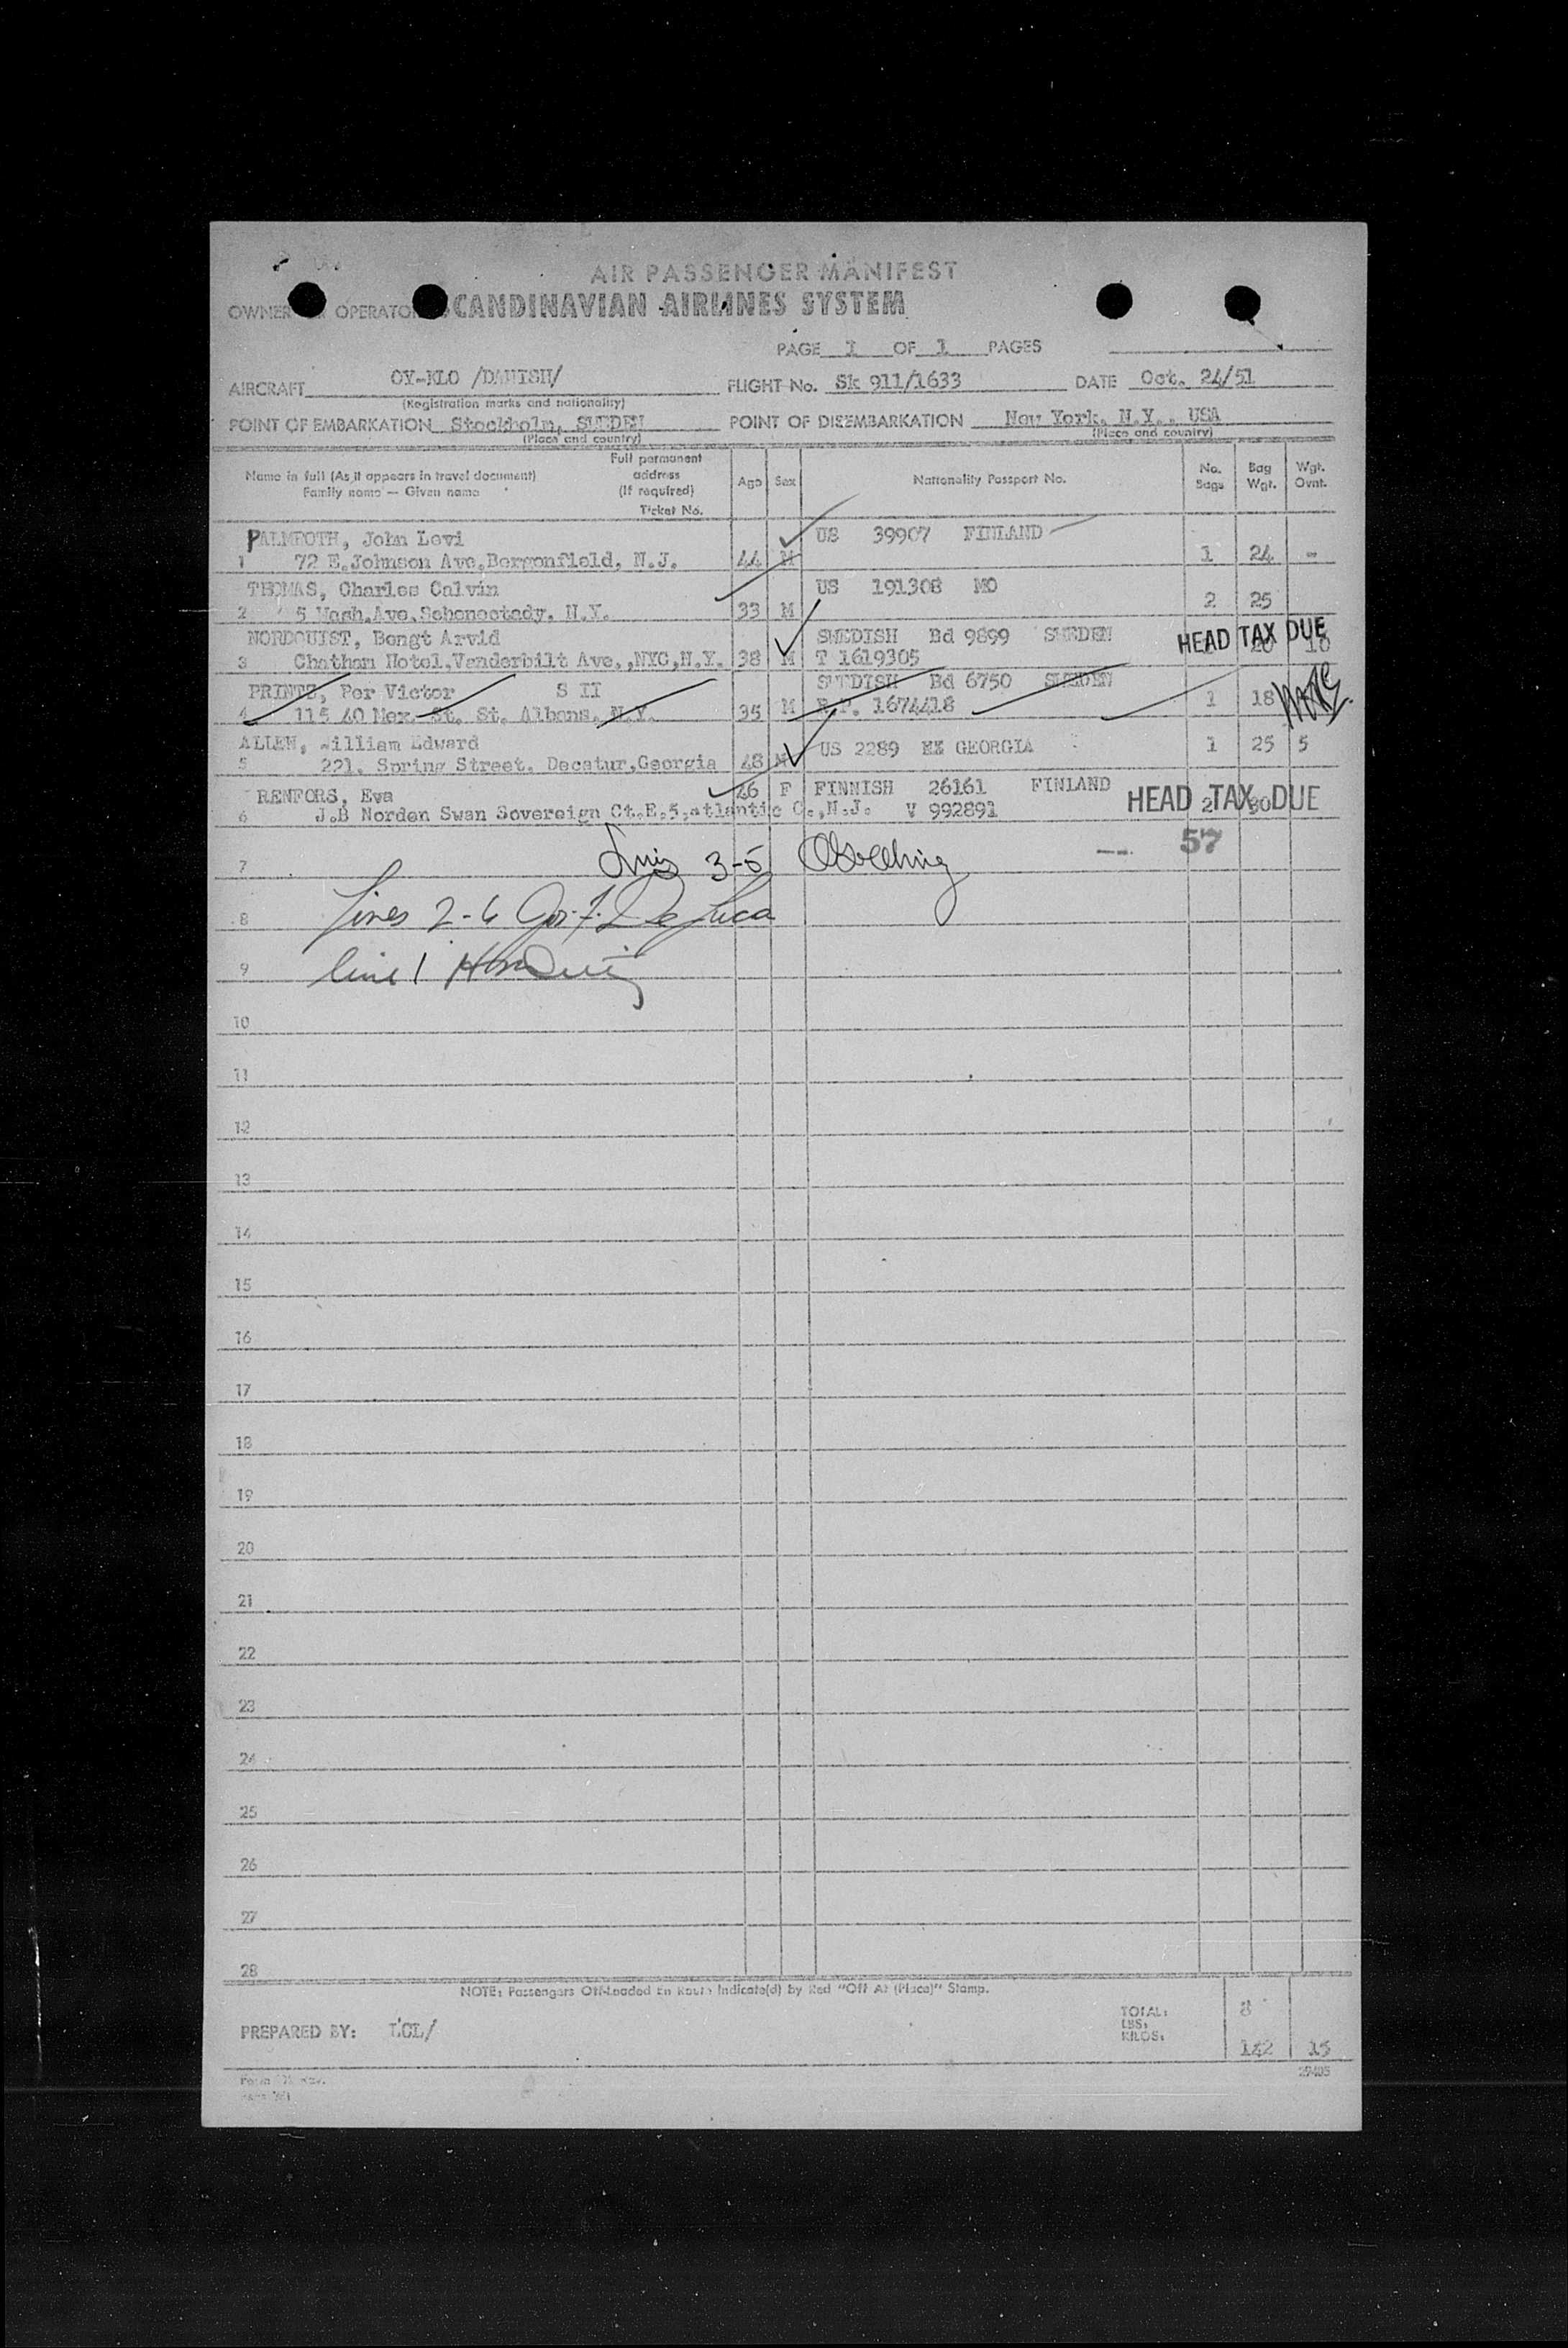 AIR PASSENGER MANIFEST
OWNER OPERATOR SCANDINAVIAN AIRLINES SYSTEM
PAGE 1 OF 1 PAGES
AIRCRAFT OY-KLO /DANISH/ FLIGHT No. Sk 911/1633 DATE Oct. 24/51
(Registration marks and nationality)
POINT OF EMBARKATION Stockholm, SWEDEN POINT OF DISEMBARKATION New York, N.Y., USA
(Place and country) (Place and country)
Name in full (As it appears in travel document)
Family name — Given name
Full permanent
address
(If required)
Ticket No.
Age Sex Nationality Passport No. No. Bags Bag Wgt. Wgt. Ovnt.
PALMROTH, John Levi US 39907 FINLAND
1 72 E.Johnson Ave,Bergenfield, N.J. 44 M 1 24 -
THOMAS, Charles Calvin US 191308 MO
2 5 Wash.Ave,Schenectady, N.Y. 33 M 2 25
NORDQUIST, Bengt Arvid SWEDISH Bd 9899 SWEDEN HEAD TAX DUE
3 Chatham Hotel,Vanderbilt Ave.,NYC,N.Y. 38 M T 1619305 20 10
PRINTZ, Per Victor S II SWEDISH Bd 6750 SWEDEN
4 115 40 Mex. St. St. Albans, N.Y. 35 M R.P. 1674418 1 18
ALLEN, William Edward
5 221. Spring Street. Decatur,Georgia 48 M US 2289 GEORGIA 1 25 5
RENFORS, Eva 26 F FINNISH 26161 FINLAND HEAD TAX DUE
6 J.B Norden Swan Sovereign Ct.E.5,atlantic C.,N.J. V 992891 2 30
57
7 3-5
8 Lines 2-6 De Luca
9 line 1
10
11
12
13
14
15
16
17
18
19
20
21
22
23
24
25
26
27
28
NOTE: Passengers Off-Loaded En Route Indicate(d) by Red "Off At (Place)" Stamp.
PREPARED BY: LCL/
TOTAL: 8
LBS:
KILOS: 142 15
29405